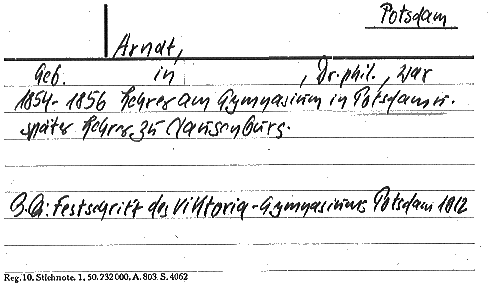 Potsdam
Arndt,
Geb. in , Dr. phil., war
1854-1856 Lehrer am Gymnasium in Potsdam u.
später Lehrer zu Clausenburg.
Festschrift des Viktoria-Gymnasiums Potsdam 1912
Reg. 10. Stichnote. 1, 50. 232000, A. 803. S. 4062